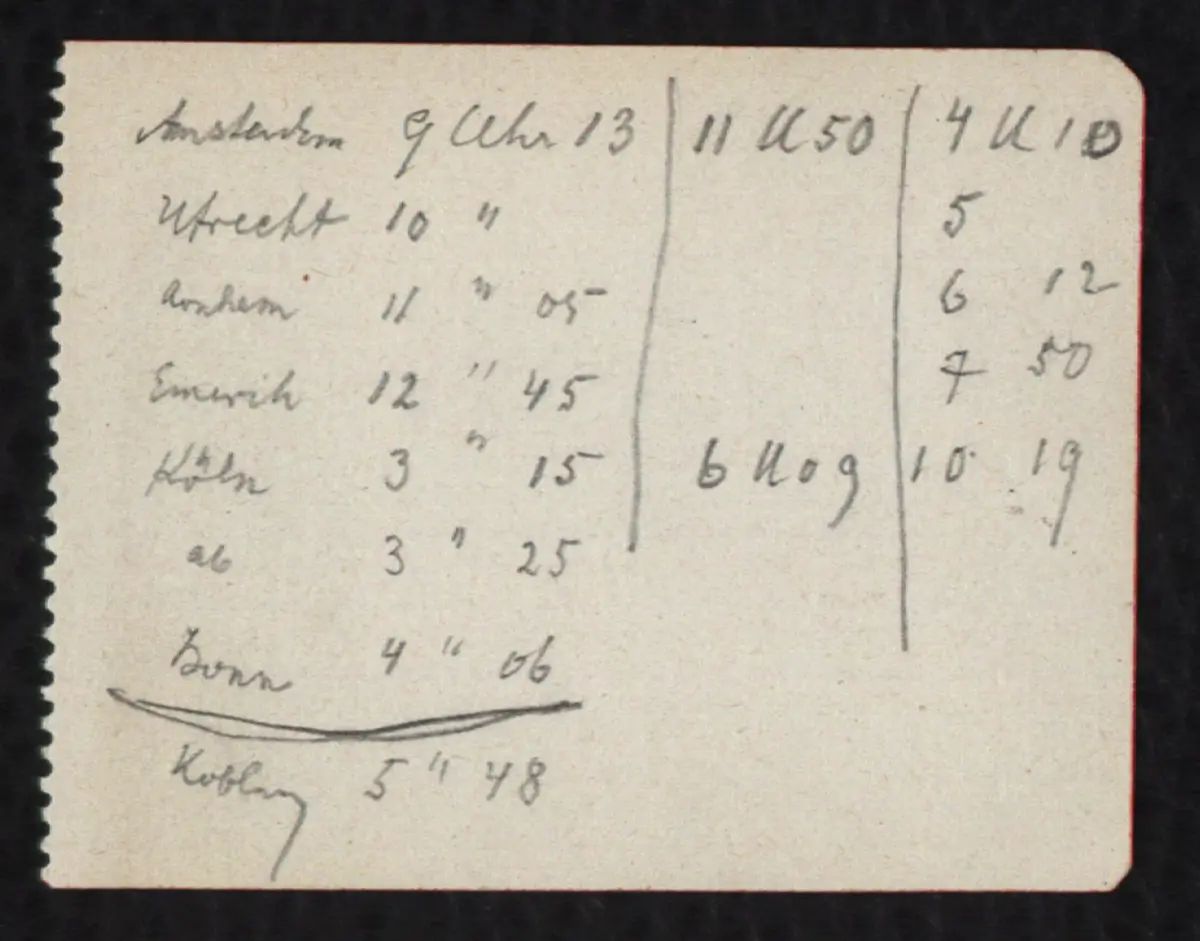 Amsterdam 9 Uhr 13 11 U 50 4 U 10
Utrecht 10 " 5
Arnhem 11 " 05 6 12
Emerich 12 " 45 7 50
Köln 3 " 15 6 U 09 10 19
ab 3 " 25
Bonn 4 " 06
Koblenz 5 " 48